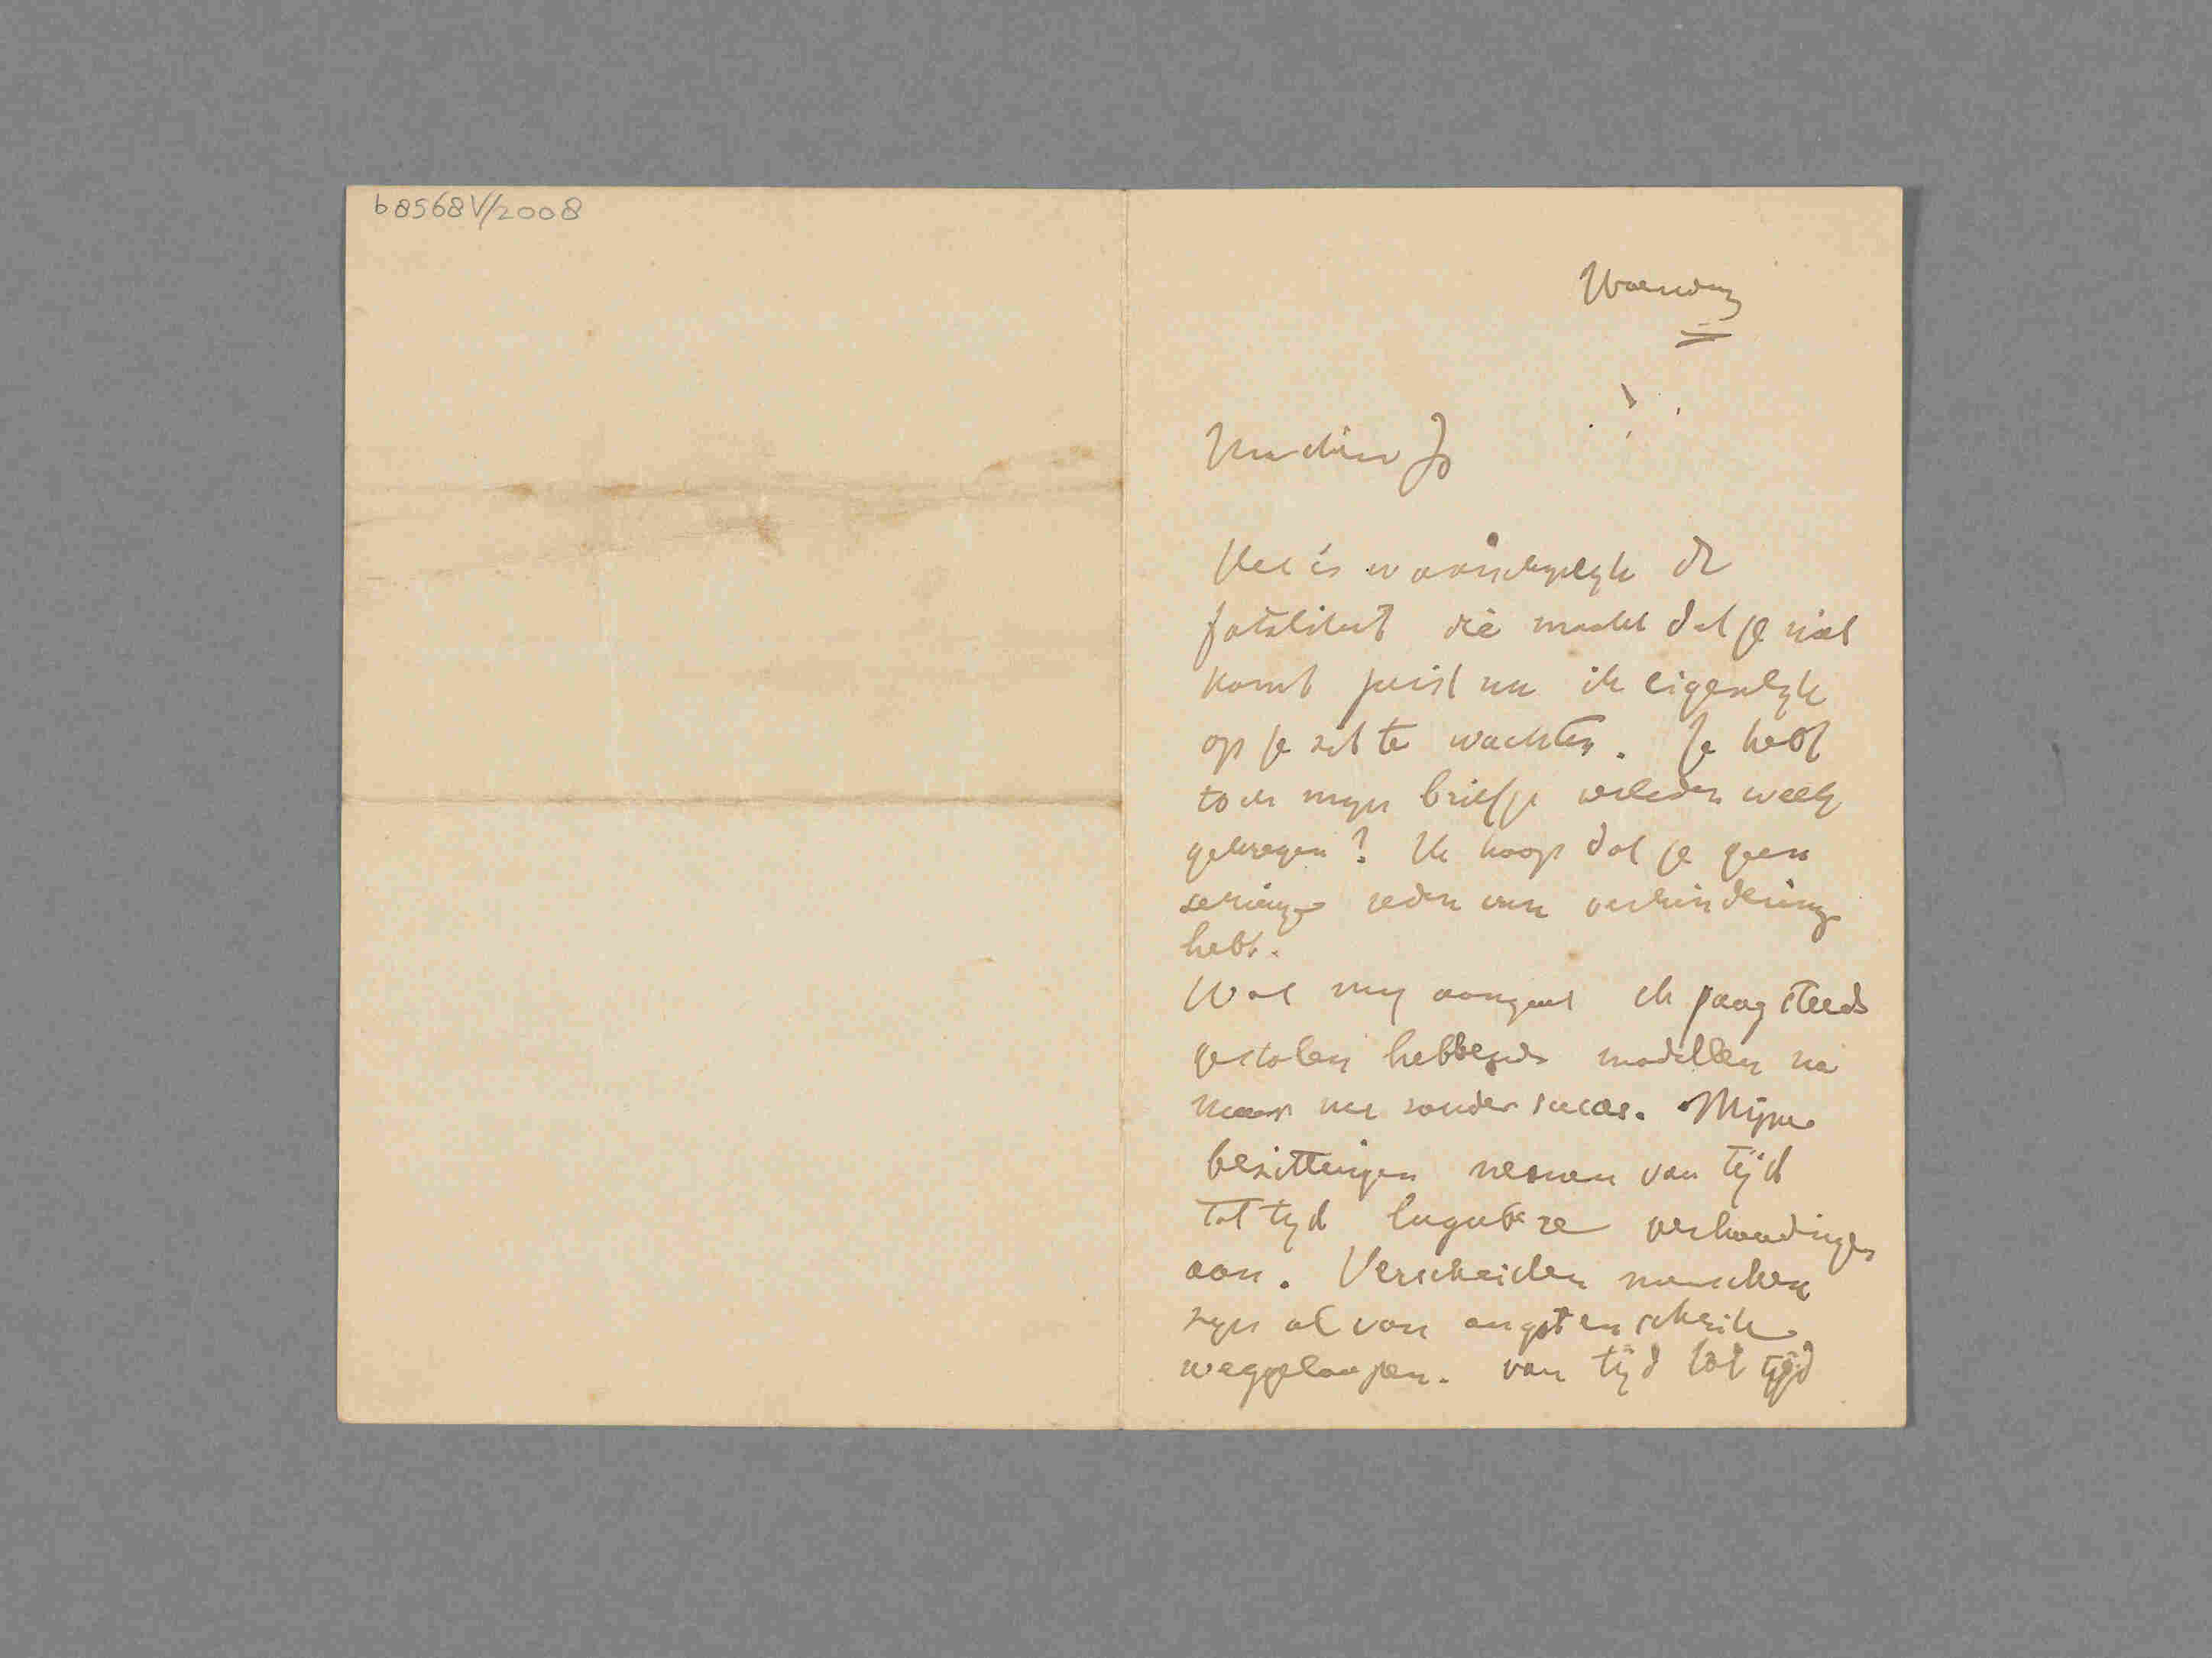 b8568V/2008
Woensdag
Jo
Het is waarschijnlijk de
fataliteit die maakt dat je niet
komt juist nu ik eigenlijk
op je zit te wachten. Je hebt
toch mijn briefje verleden week
gekregen? Ik hoop dat je geen
serieuze reden van verhindering
hebt.
Wat mij aangaat ik jaag steeds
gestolen hebbende modellen na
maar nu zonder succes. Mijne
bezittingen nemen van tijd
tot tijd lugubre verhoudingen
aan. Verscheiden menschen
zijn al van angst en schrik
weggeloopen. van tijd tot tijd